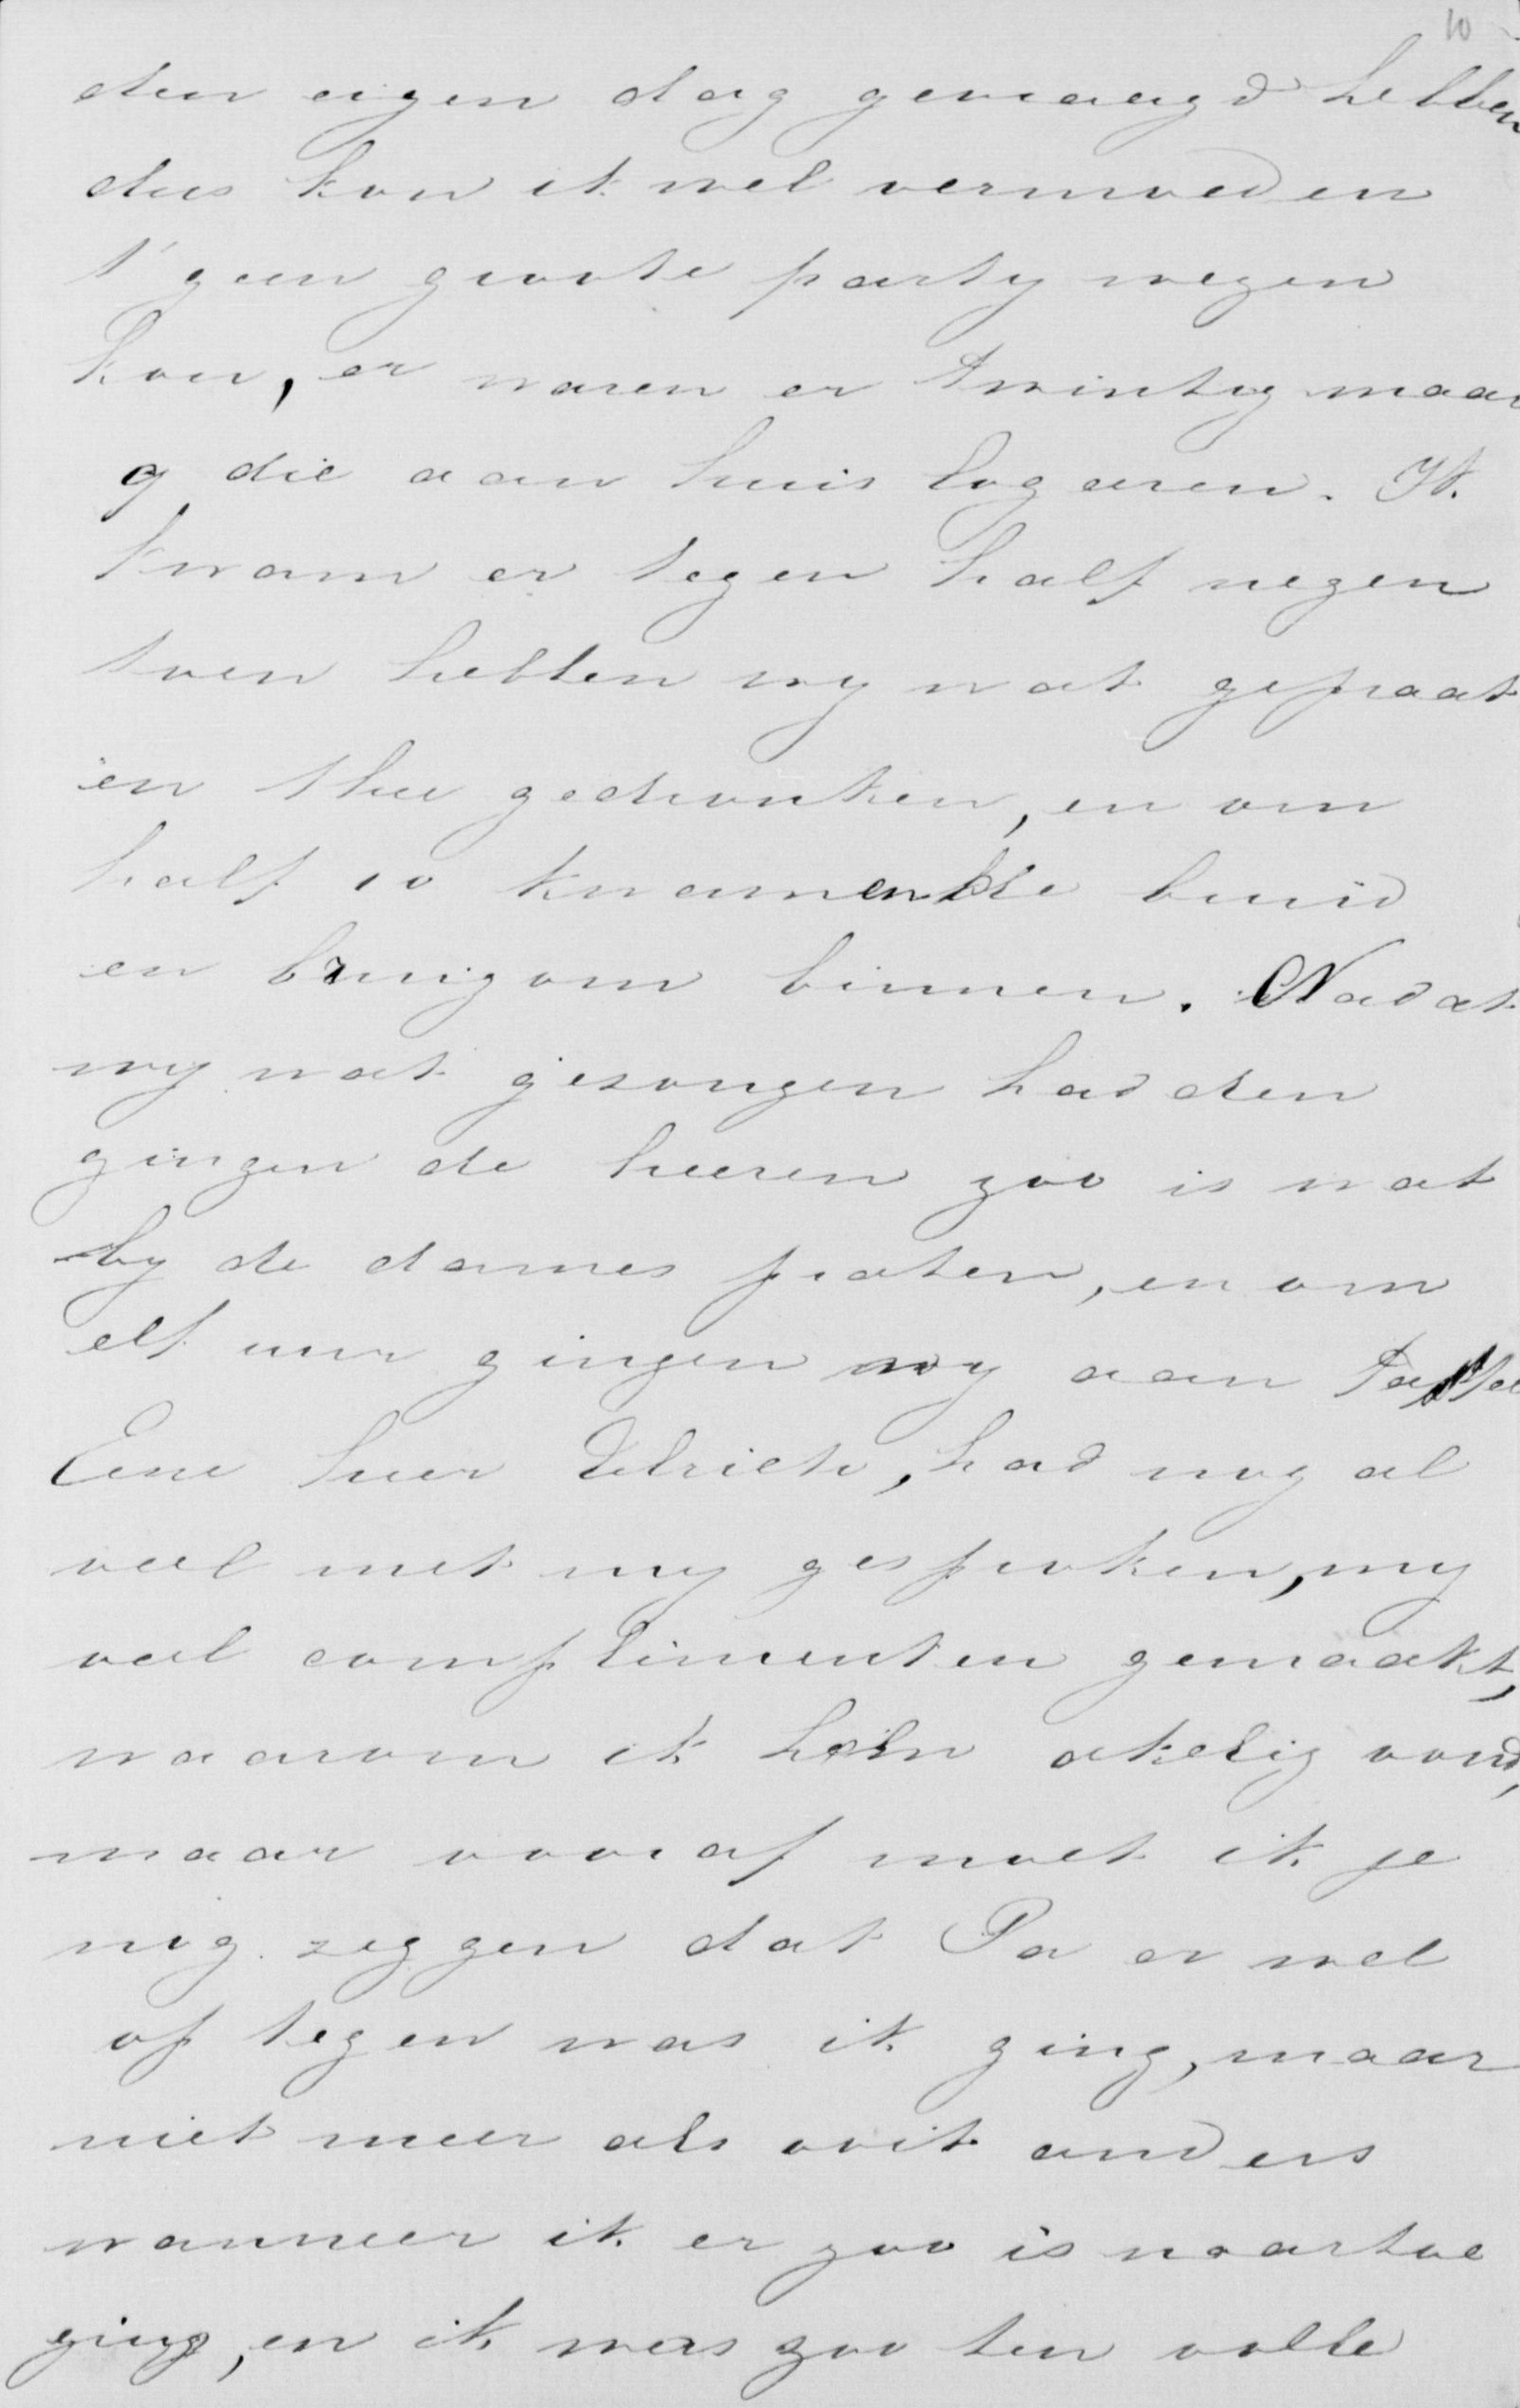 10
den eigen dag gevraagd hebben
dus kon ik wel vermoeden
t' geen groote party wezen
kon, er waren er twintig maar
9 die aan huis logeeren. Ik
kwam er tegen half negen
toen hebben wy wat gepraat
en thee gedronken, en om
half 10 kwamen de bruid
en bruigom binnen. Nadat
wy wat gezongen hadden
gingen de heeren zoo is wat
by de dames praten, en om
elf uur gingen wy aan Tafel
Eene heer Ulrich, had nog al
veel met my gesproken, my
veel complimenten gemaakt,
waarom ik hem akelig vond,
maar vooraf moet ik je
nog zeggen dat Pa er wel
op tegen was ik ging, maar
niet meer als ooit anders
wanneer ik er zoo is naartoe
ging, en ik was zoo ten volle